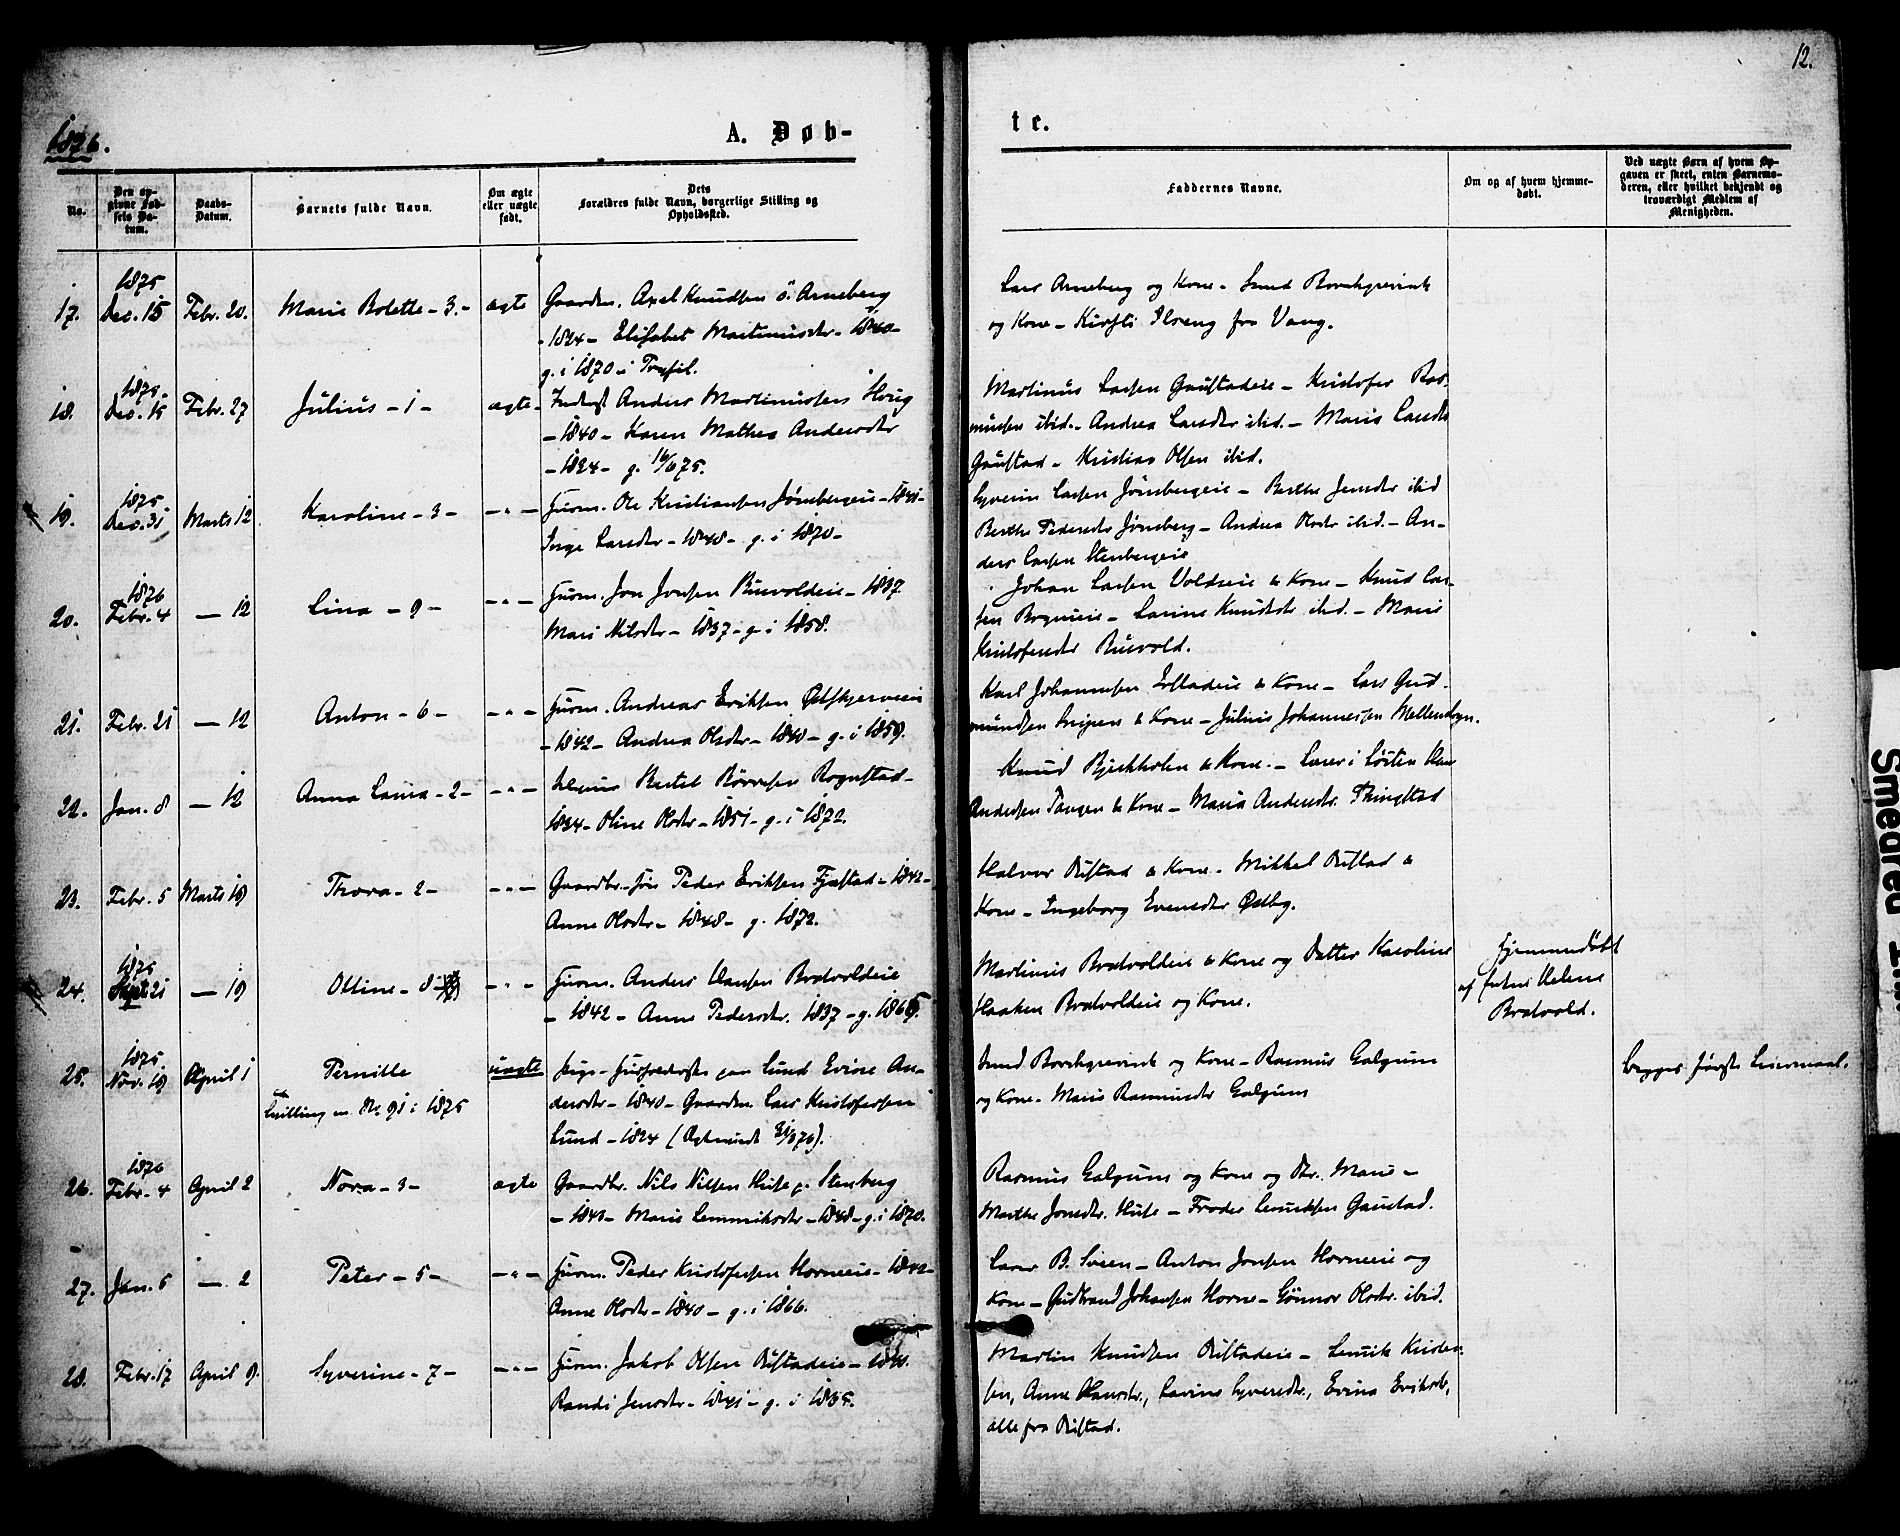 12.
1876.
A. Døb-
te.
No.
Den opgivne Fødsels Datum.
Daabs-Datum.
Barnets fulde Navn.
Om ægte eller uægte født.
Dets Forældres fulde Navn, borgerlige Stilling og Opholdssted.
Faddernes Navne.
Om og af hvem hjemmedøbt.
Ved uægte Børn af hvem Opgaven er skeet, enten Barnemoderen, eller hvilket bekjendt og troværdigt Medlem af Menigheden.
1875
17. Dec. 15 Febr. 20. Marie Bolette - 3. - ægte Gaardm. Axel Knudsen ö. Arneberg
- 1824 - Elisabet Martinusdtr - 1840 -
g. i 1870 i Trysil.
Lars Arneberg og Kone -
og Kone - Kirsti Ilseng fra Vang.
1875
18. Dec. 15 Febr. 27 Julius - 1 - ægte - Inderst Anders Martinussen
- 1840 - Karen Mathea Andersdtr
- 1824 - g. 16/6 75.
Martinus Larsen Gaustadeie - Kristofer Ras-
mussen ibid. - Andrea Larsdtr ibid. - Maria Larsdtr
Gaustad - Kristian Olsen ibid.
1875
19. Dec. 31 Marts 12 Karoline - 3 - - " - Husm. Ole Kristiansen Jönsbergeie - 1841 -
Inge Larsdtr - 1848 - g. i 1870 -
Syverin Larsen Jönsbergeie - Berthe Jensdtr ibid
Berthe Pedersdtr Jönsberg - Andrea Olsdtr ibid. - An-
ders Larsen Stenbergeie
1876
20. Febr. 4 - 12 Lina - 9 - - " - Husm. Jon Jonsen Buvoldeie - 1837
Mari Nilsdtr - 1837 - g. i 1858.
Johan Larsen Voldseie & Kone - Knud Lar-
sen - Larine Knudsdtr ibid. - Marie
Kristofersdtr Buvold.
21. Febr. 21 - 12 Anton - 6 - - " - Husm. Andreas Eriksen
- 1842 - Andrea Olsdtr - 1840 - g. i 1859.
Karl Johannesen & Kone - Lars Gud-
mundsen & Kone - Julius Johannessen Mellembyn.
22. Jan. 8 - 12 Anna Laura - 2 - - " - Bertel Börresen Rognstad -
1834 - Oline Olsdtr - 1851 - g. i 1872.
Knud Bjerkholen & Kone. - Lærer i Löiten
Andersen Tangen & Kone - Maria Andersdtr. Thingstad
23. Febr. 5 Marts 19 Thora - 2 - - " - Gaardbr. Peder Eriksen Fjæstad - 1842 -
Anne Olsdtr - 1848 - g. 1872.
Halvor Ilstad & Kone - Mikkel &
Kone - Ingeborg Evensdtr Østby.
1875
24. Sept. 21 - 19 Oltine - 8 - - " - Husm. Anders Hansen Bratvoldeie
- 1842 - Anne Pedersdtr. 1837 - g. 1865.
Martinus Bratvoldeie & Kone og Datter Karoline
Haaken Bratvoldeie og Kone.
Hjemmedøbt
af Helene
Bratvold.
1875
25. Nov. 19 April 1 Pernille uægte Pige Lund Evine An-
Tvilling m. No 91 i 1875
dersdtr - 1840 - Gaardm. Lars Kristofersen
Lund - 1824
og Kone - Rasmus Galgum
og Kone - Marie Rasmusdtr Galgum
Begges første Leiermaal.
1876
26. Febr. 4 April 2 Nora - 3 - ægte Gaardbr. Nils Nilsen Huse p. Stenberg
- 1841 - Marie Lemmiksdtr - 1848 - g. i 1870.
Rasmus Galgum og Kone og Dtr. Marie -
Marthe Jonsdtr. Huse - Gaustad.
27. Jan. 5 - 2 Peter - 5 - - " - Husm. Peder Kristofersen Horneeie - 1842 -
Anne Olsdtr - 1840 - g. i 1866.
Lars B. - Anton Jonsen Horneeie og
Kone - Gudbrand Johansen Horne - Gunnor Olsdtr. ibid.
28. Febr. 17 April 9. Syverine - 7 - - " - Husm. Jakob Olsen
Randi Jensdtr - 1841 - g. i
Martin Knudsen -
sen, Anne Hansdtr., Larine Syversdtr., Evina Eriksdtr,
alle fra
Smedrud